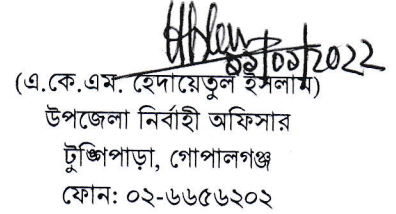 (এ.কে.এম. হেদায়েতুল ইসলাম)
উপজেলা নির্বাহী অফিসার
টুঙ্গিপাড়া, গোপালগঞ্জ
ফোন: ০২-৬৬৫৬২০২